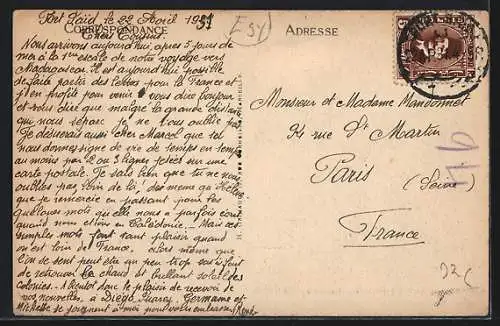 Port Said, le 22 Avril 1937
CORRESPONDANCE
ADRESSE
Chers Cousins,
Nous arrivons aujourd'hui, après 5 jours de
mer à la 1ère escale de notre voyage vers
Madagascar. Il est aujourd'hui possible
de faire partir des lettres pour la France et
j'en profite pour venir vous dire bonjour
et vous dire que malgré la grande distance
qui nous sépare je ne vous oublie pas.
Je désirerais aussi cher Marcel que tu
nous donnes signe de vie de temps en temps
au moins par 2 ou 3 lignes jetées sur une
carte postale. Je sais bien que tu ne nous
oublies pas, loin de là, de même qu'Hélène
que je remercie en passant pour les
quelques mots qu'elle nous a parfois écrits
quand nous étions en Calédonie. Mais ces
simples mots font tant plaisir quand
on est loin de France. Alors même que
l'on se sent peut être un peu trop
de retrouver le chaud et brillant soleil des
Colonies. A bientôt donc le plaisir de recevoir de
vos nouvelles, à Diégo Suarez. Germaine et
Michelle se joignent à moi pour vous embrasser. René
Monsieur et Madame Mondonnet
34 rue St Martin
Paris
(Seine)
France